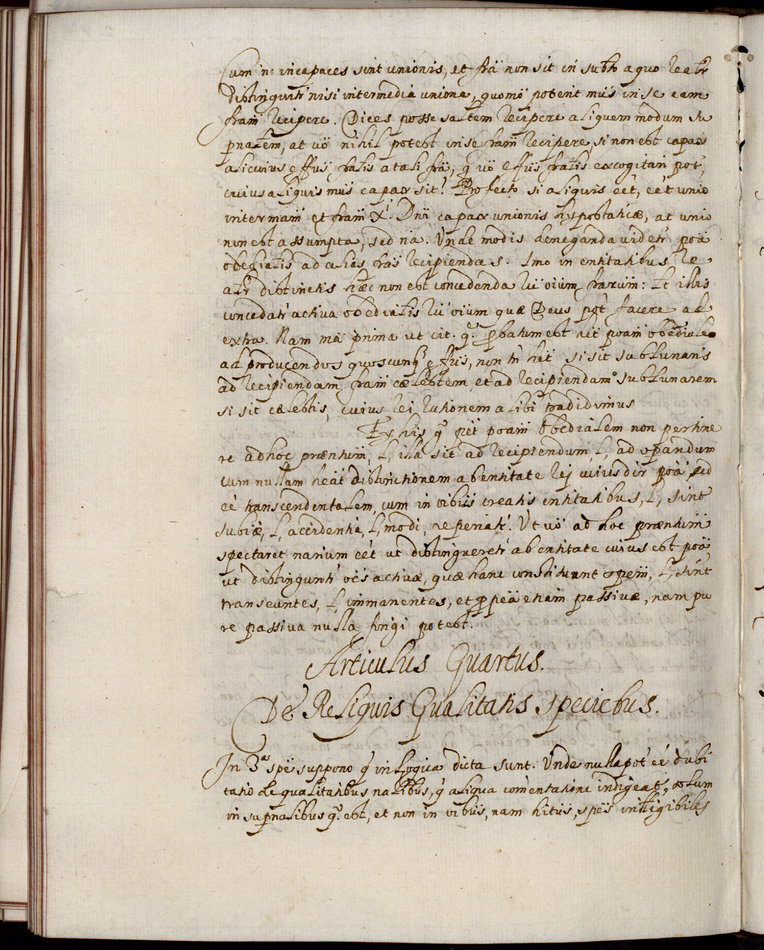 cum n. incapaces sint unionis, et frã non sit in subto a quo realr
distinguitr nisi intermedia unione, quomo potent mus in se eam
fram recipere. Dices posse saltem recipere aliquem modum su
prnalem, at uo nihil potest in se fram recipere, si non est capax
alicuius effus fralis a tali frã, q uo effus fralis excogitari pot,
cuius aliquis mus capax sit? Profecto si aliquis eet, eet unio
inter mam et fram Xi Dni capax unionis hypostaticæ, at unio
non est assumpta, sed na. Unde modis deneganda videtr poã
obedialis ad alias fras recipiendas. Imo in entitatibus re
alr distinctis hæc non est concedenda
concedatr activa obedialis quæ Deus pot facere ad
extra. Nam mã prima ut cit. q. probatum est het poam obediale
ad producendos quoscunq effus, non tn het si sit sublunaris
ad recipiendam fram cælestem, et ad recipiendam sublunarem
si sit cælestis, cuius rei rationem alibi tradidimus
Ex his q pet poam obedialem non pertine
re ad hoc prædntum, l, illa sit ad recipiendum l, ad operandum
cum nullam heat distinctionem ab entitate rei cuius dir poã, sed
eê transcendentalem, cum in oibus creatis entitatibus, l, sint
subiæ, l, accidentia, l, modi, reperiatr. Ut uo ad hoc prædntum
spectaret narium eet ut distingueretr ab entitate cuius est poã
ut distinguntr oes activæ, quæ hanc constituunt spem, l, sint
transeuntes, l, immanentes, et propeã etiam passivæ, nam pu
re passiva nulla fingi potest.
Articulus Quartus.
De Reliquis Qualitatis speciebus.
In 3ã spe suppono q in Logica dicta sunt. Unde nulla pot eê dubi
tatio de qualitatibus nalibus, q aliqua comentatione indigeat, solum
in suprnalibus q. est, et non in oibus, nam hitus, spes intelligibiles